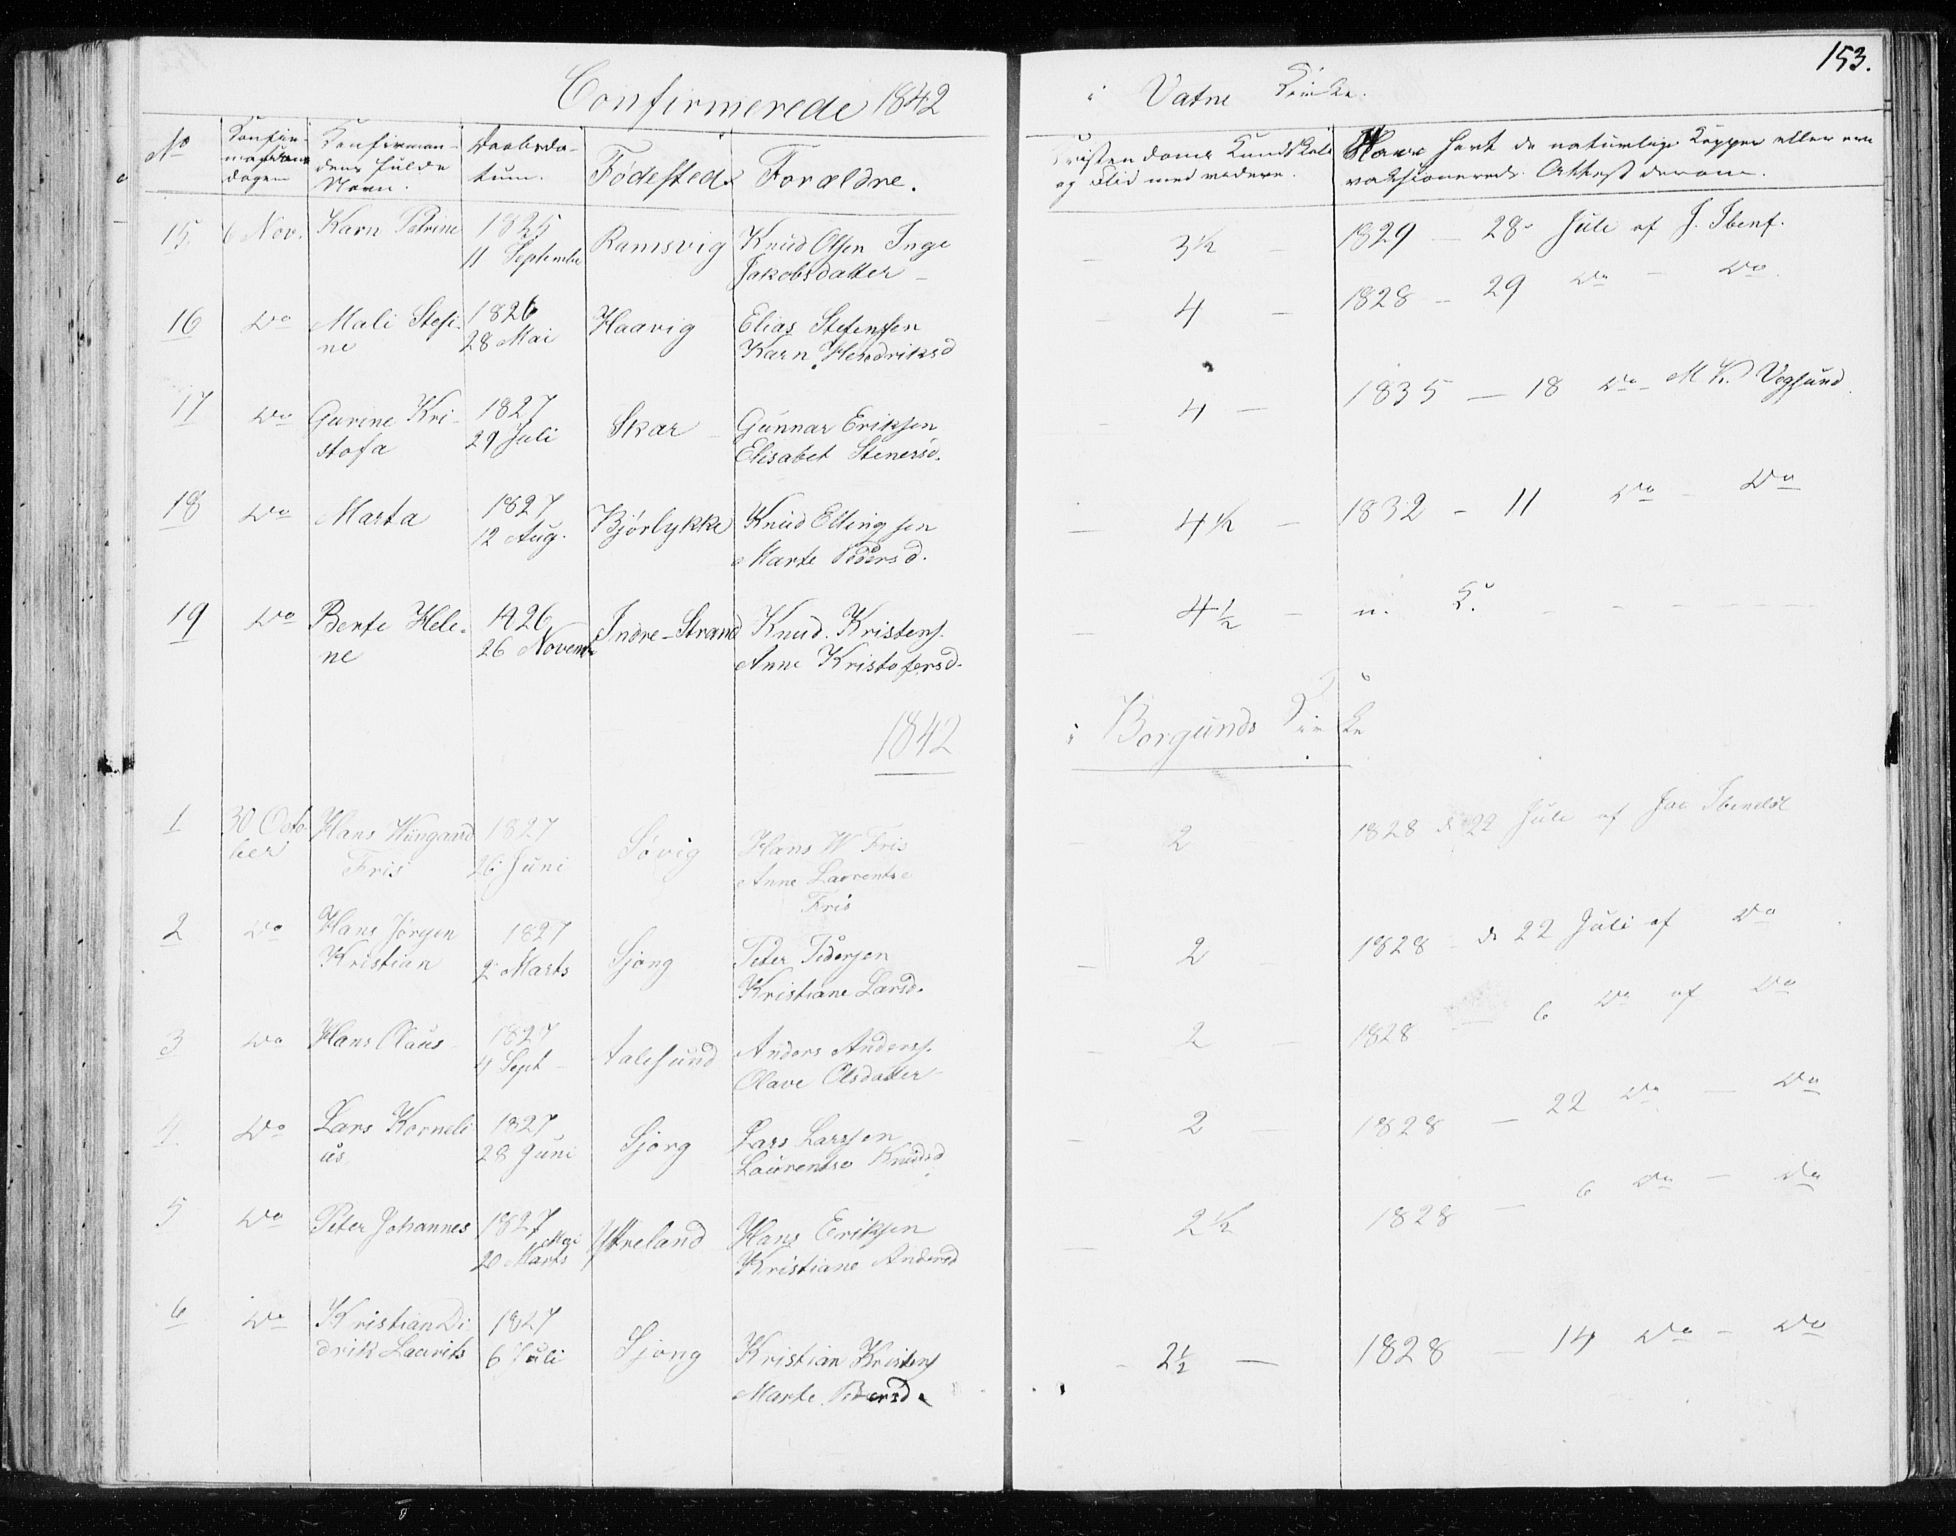 153.
Confirmerede 1842 i Vatne Kirke.
No Confirmationsdagen Konfirmandens fulde Navn. Daabsdatum. Fødested. Forældre. Kristendoms Kundskab og Flid med videre. Have havt de naturlige Kopper eller ere vaksinerede. Attest derom.
15. 6 Nov. Karn Petrine 1825 11 September Ramsvig Knud Olsen Inge Jakobsdatter 3½ 1829 – 28 Juli af J. Ibens.
16 Do Mali Stefine 1826 28 Mai Haavig Elias Stefensen Karn Hendriksd 4 1828 – 29 Do – Do
17 Do Gurine Kristofa 1827 29 Juli Skar Gunnar Eriksen Elisabet Stenersd. 4 1835 – 18 Do – M K. Vegsund
18 Do Marta 1827 12 Aug. Bjørlykke Knud Ellingsen Marte Pedersd. 4½ 1832 – 11 Do – Do
19 Do Berte Helene 1826 26 Novemb Indre-Strand Knud Kristens. Anne Kristofersd. 4½ n. K.
1842 i Borgunds Kirke
1 30 October Hans Wiingaard Fris 1827 26 Juni Søvig Hans W Fris Anne Laurentse Fris 2 1828 d. 22 Juli af Jac Ibendst
2 Do Hans Jørgen Kristian 1827 2 Marts Sjong Peter Pedersen Kristiane Larsd. 2 1828 d. 22 Juli af Do
3 Do Hans Olaus 1827 4 Sept Aalesund Anders Anderss. Olave Olsdatter 2 1828 – 6 Do af Do
4 Do Lars Kornelius 1827 28 Juni Sjong Lars Larssen Laurentse Knudsd 2 1828 – 22 Do – Do
5 Do Peter Johannes 1827 Mai 20 Marts Ytreland Hans Eriksen Kristiane Andersd 2½ 1828 – 6 Do – Do
6 Do Kristian Didrik Laurits 1827 6 Juli Sjong Kristian Kristens Marte Pedersd. 2½ 1828 – 14 Do – Do